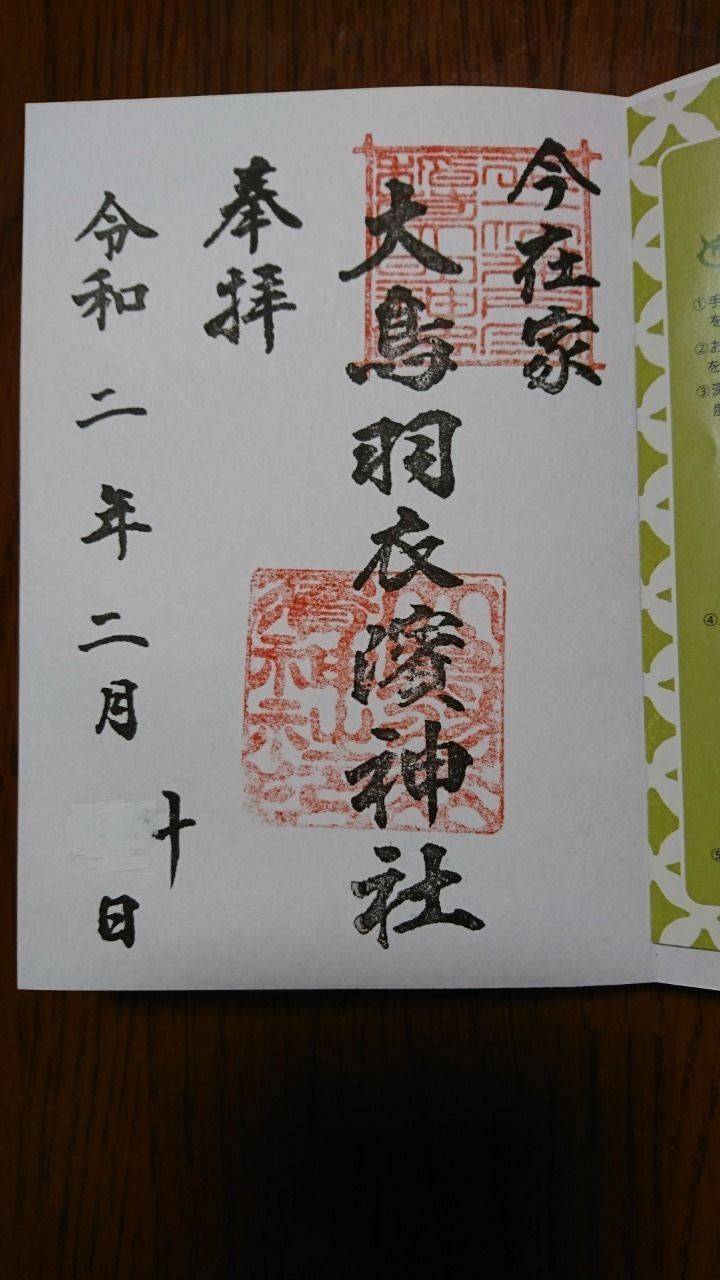 今在家
大鳥羽衣濱神社
奉拝
令和二年二月十日
①手
を
②お
を
③
④
⑤